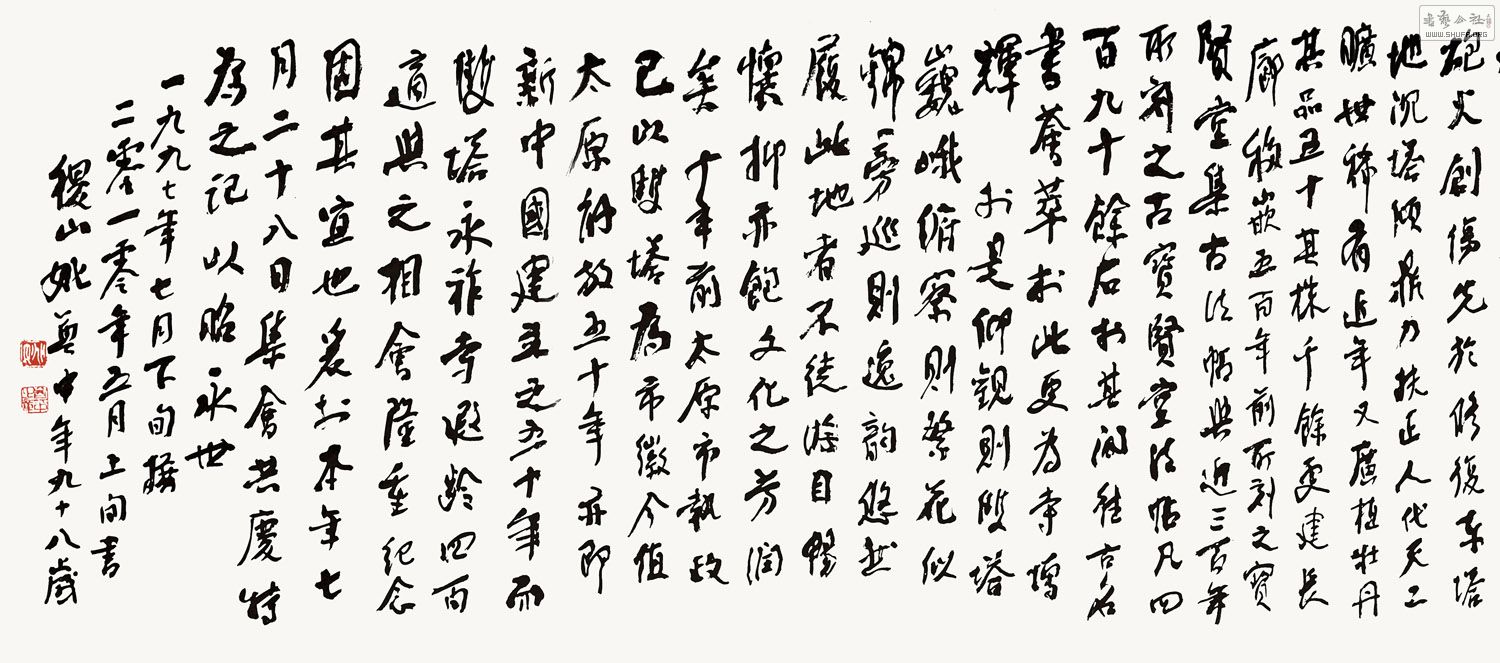 砲火創傷先於修復東塔
地沉塔傾鼎力扶正人代天工
曠世稀有近年又廣植牡丹
其品五十其株千餘更建長
廊移嵌五百年前所刻之寶
賢堂集古法帖與近三百年
所刻之古寶賢堂法帖凡四
百九十餘石於其間往古名
書薈萃於此更為寺增
輝 於是仰觀則雙塔
巍峨俯察則繁花似
錦旁巡則逸韵悠然
履此地者不徒游目暢
懷抑亦飽文化之芳潤
矣十年前太原市執政
已以雙塔為市徽今值
太原解放五十年亦即
新中國建立之五十年而
雙塔永祚寺遐齡四百
適與之相會隆重紀念
固其宜也爰於本年七
月二十八日集會共慶特
為之記以昭永世
一九九七年七月下旬撰
二零一零年五月上旬書
稷山姚奠中年九十八歲
書藝公社
WWW.SHUFA.ORG